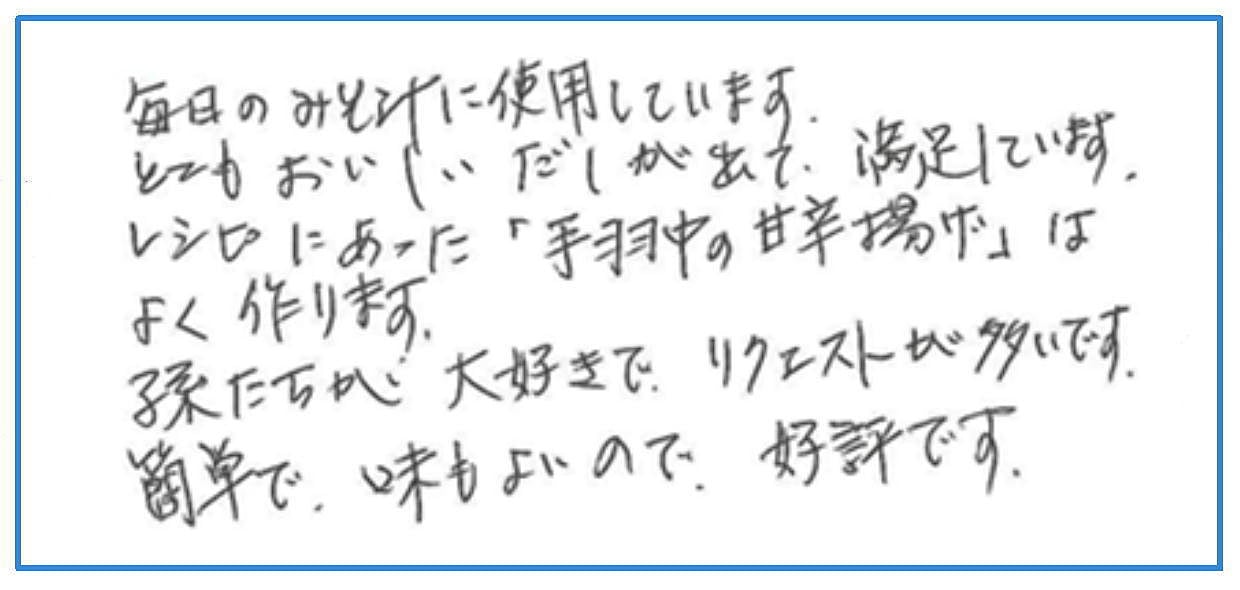 毎日のみそ汁に使用しています.
とてもおいしいだしが出て、満足しています.
レシピにあった「手羽中の甘辛揚げ」は
よく作ります.
孫たちが大好きで、リクエストが多いです.
簡単で、味もよいので、好評です.